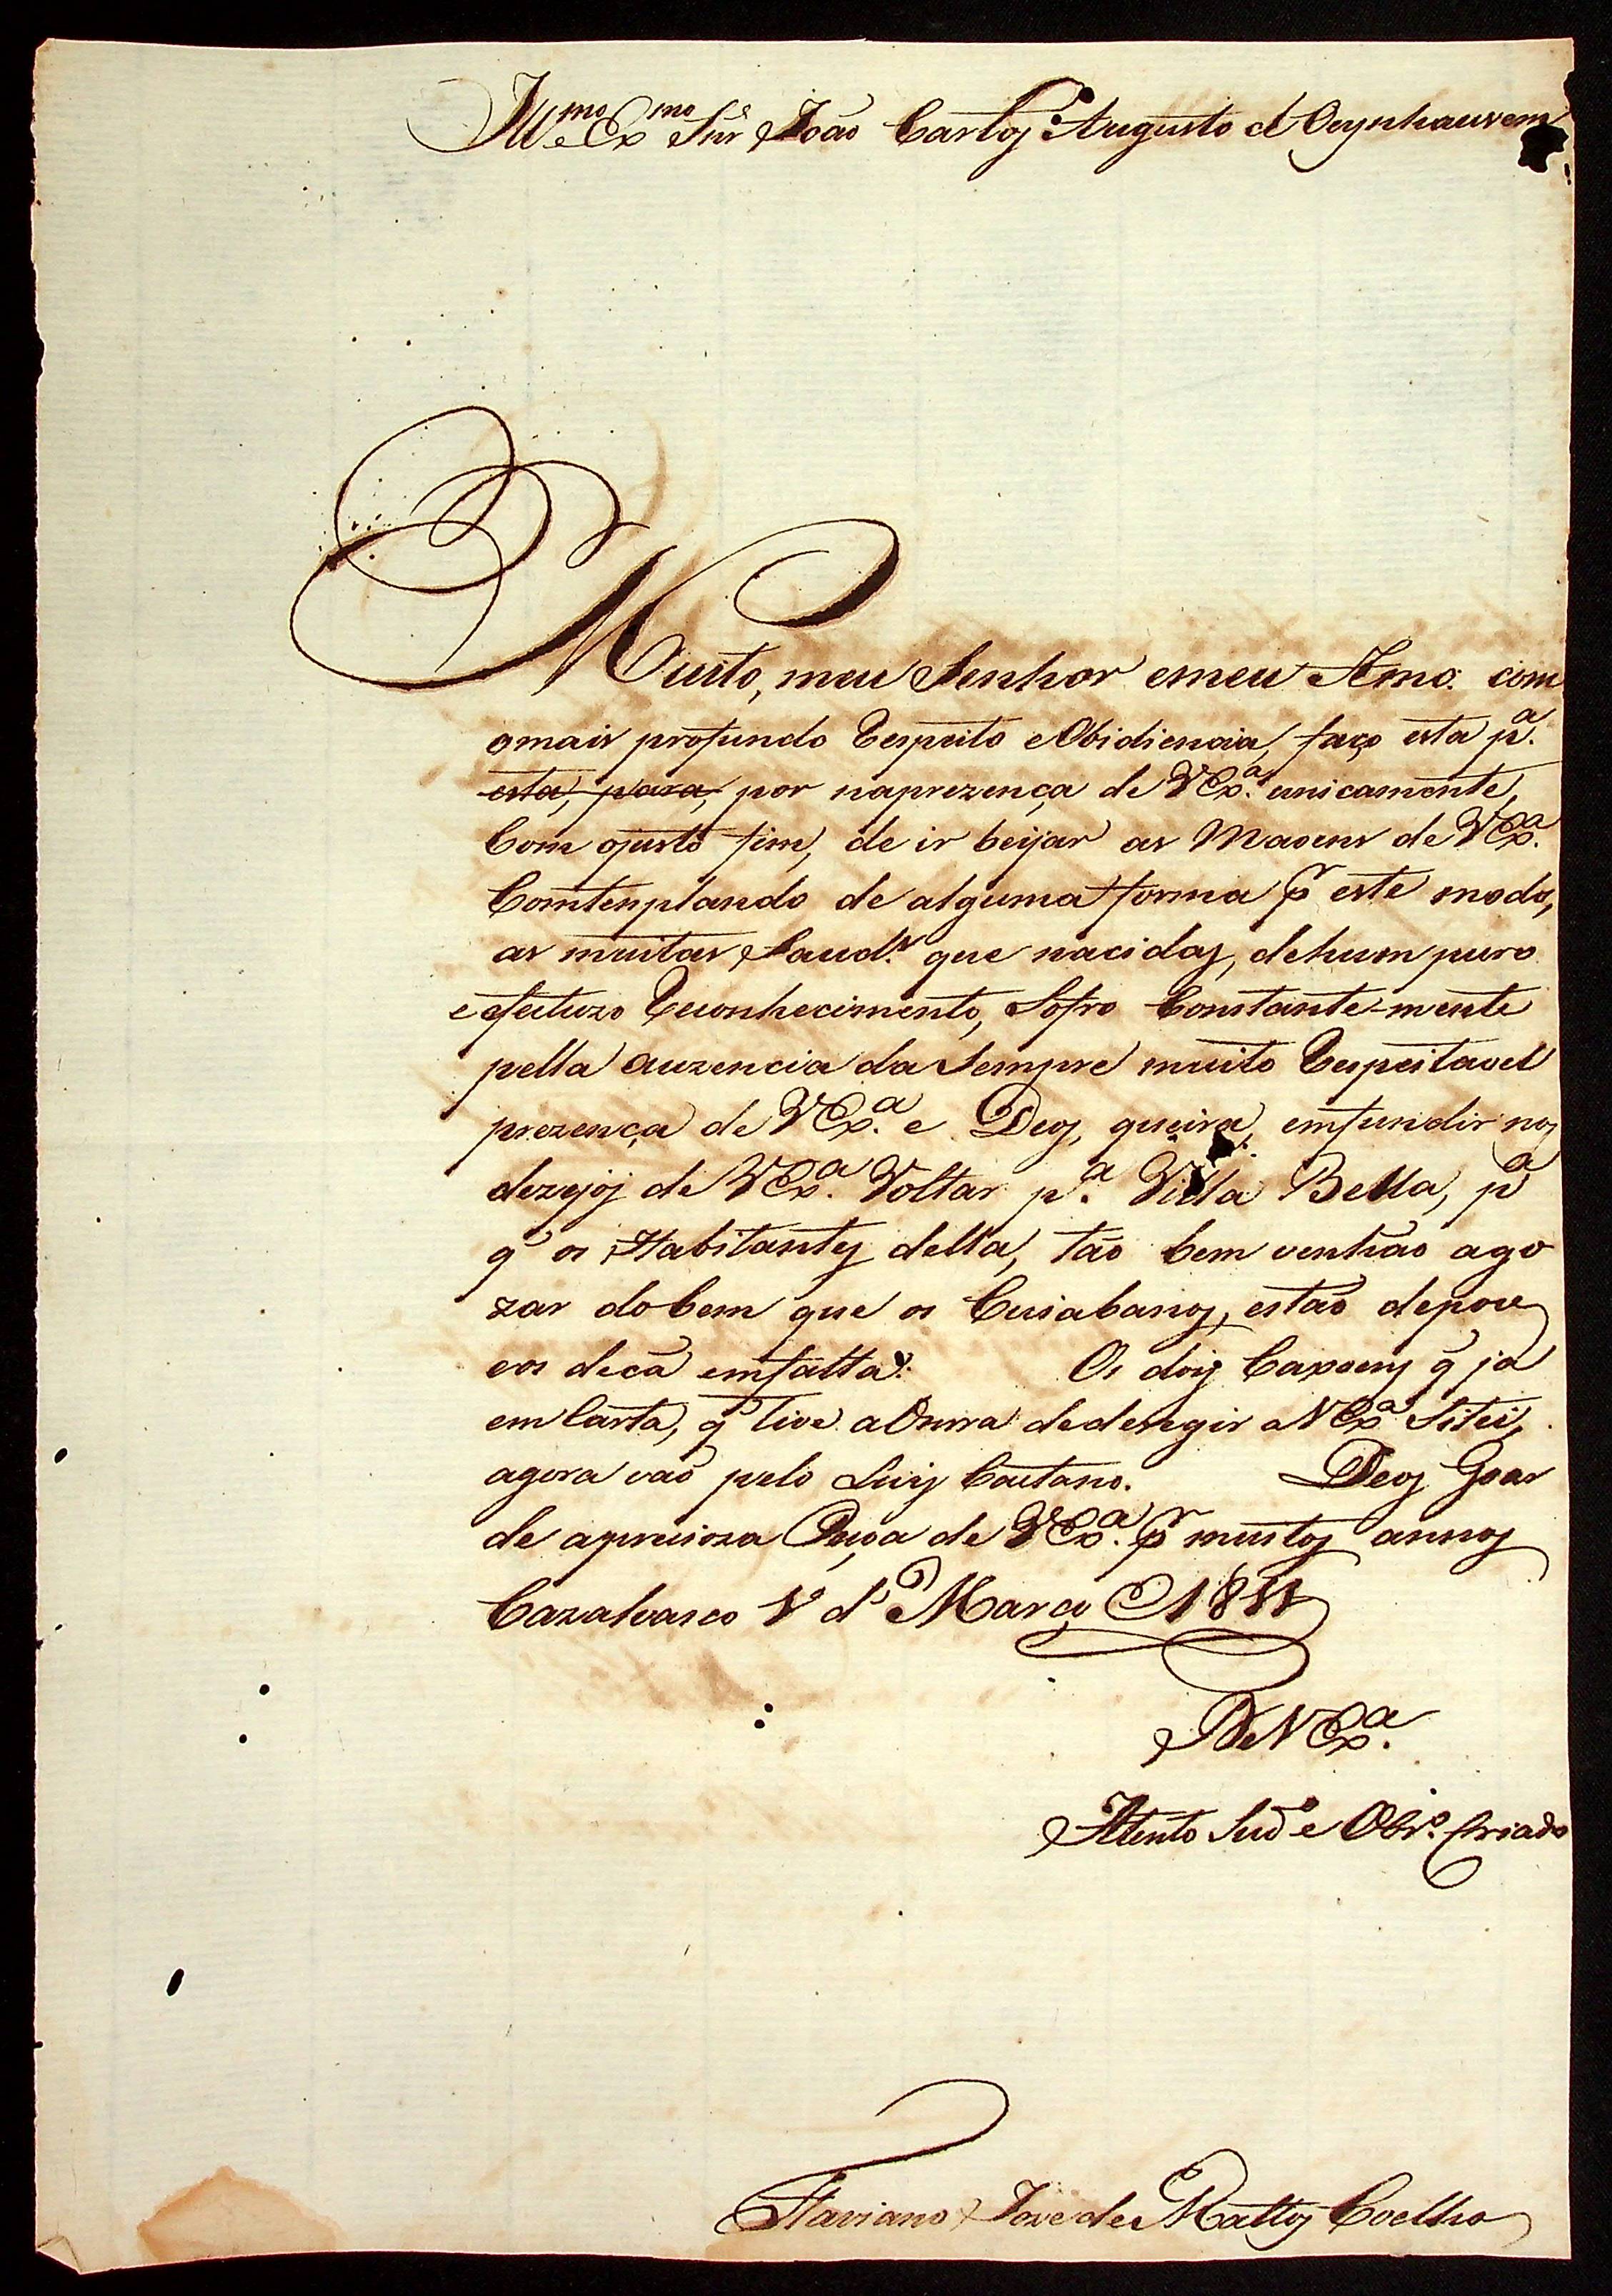 Ill.mo e Ex.mo Snr João Carlos Augusto d Oeynhausem
Muito, meu Senhor emeu Amo. com
omais profundo Respeito eObidiencia, faço esta p.a
esta, para, por naprezença de VEx.a unicamente,
Com ojusto fim, de ir beijar as Maoens de VEx.a
Comtenplando de alguma forma pr este modo,
as muitas Saud.s que nacidas, dehum puro
e efectuzo Reconhecimento, Sofro Constante-mente
pella auzencia da Sempre muito Respeitavel
prezença de VEx.a e Deos, queira, emfundir nos
dezejos de VEx.a Voltar p.a Villa Bella, p.a
q̃ os Habitantes della, tão bem venhão ago
zar dobem que os Cuiabanos, estão depoce
eos decá emfalta.
Os dois Caxoens q̃ já
em Carta, q̃ tive aOnrra dederegir aVEx.a Sitei,
agora vão pelo Luis Caetano.
Deos Goar
de aprecioza Peçoa de VEx.a pr muitos annos
Cazalvasco 1º d' Março 1811
De VEx.a
Atento Sud.o e Obr.o Criado
Flaviano Joze de Mattos Coelho